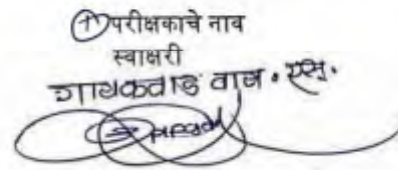 १ परीक्षकाचे नाव
स्वाक्षरी
गायकवाड वाय. एस.